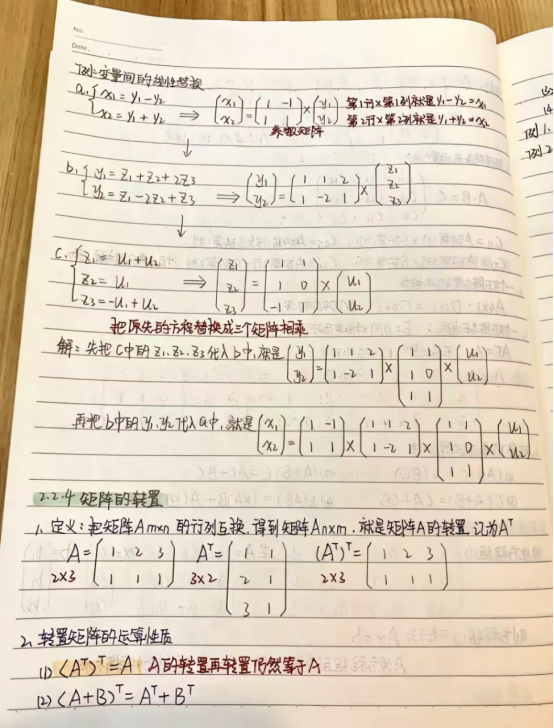 No.
Date.
例: 变量间的线性替换
a. { x₁ = y₁ - y₂
x₂ = y₁ + y₂ ⇒ (x₁ x₂) = (1 -1 / 1 1) × (y₁ y₂) 第1行×第1列就是y₁-y₂=x₁
第2行×第2列就是y₁+y₂=x₂
系数矩阵
↓
b. { y₁ = z₁ + z₂ + 2z₃
y₂ = z₁ - 2z₂ + z₃ ⇒ (y₁ y₂) = (1 1 2 / 1 -2 1) × (z₁ z₂ z₃)
↓
c. { z₁ = u₁ + u₂
z₂ = u₁ ⇒ (z₁ z₂ z₃) = (1 1 / 1 0 / -1 1) × (u₁ u₂)
z₃ = -u₁ + u₂
把原先的方程替换成三个矩阵相乘
解: 先把C中的z₁、z₂、z₃代入b中,就是 (y₁ y₂) = (1 1 2 / 1 -2 1) × (1 1 / 1 0 / 1 1) × (u₁ u₂)
再把b中的y₁、y₂代入a中,就是 (x₁ x₂) = (1 -1 / 1 1) × (1 1 2 / 1 -2 1) × (1 1 / 1 0 / 1 1) × (u₁ u₂)
2.2.4 矩阵的转置
1. 定义: 把矩阵Am×n的行列互换,得到矩阵An×m,就是矩阵A的转置,记为Aᵀ
A = (1 2 3 / 1 1 1) Aᵀ = (1 1 / 2 1 / 3 1) (Aᵀ)ᵀ = (1 2 3 / 1 1 1)
2×3 3×2 2×3
2. 转置矩阵的运算性质
(1) (Aᵀ)ᵀ = A A的转置再转置仍然等于A
(2) (A+B)ᵀ = Aᵀ + Bᵀ